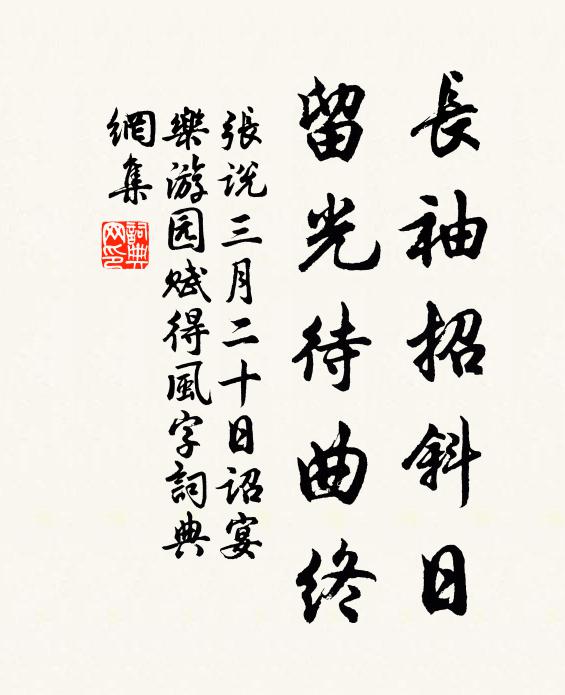 長袖招斜日
留光待曲終
張説三月二十日詔宴
樂游园赋得風字詞典
網集
詞典
网印